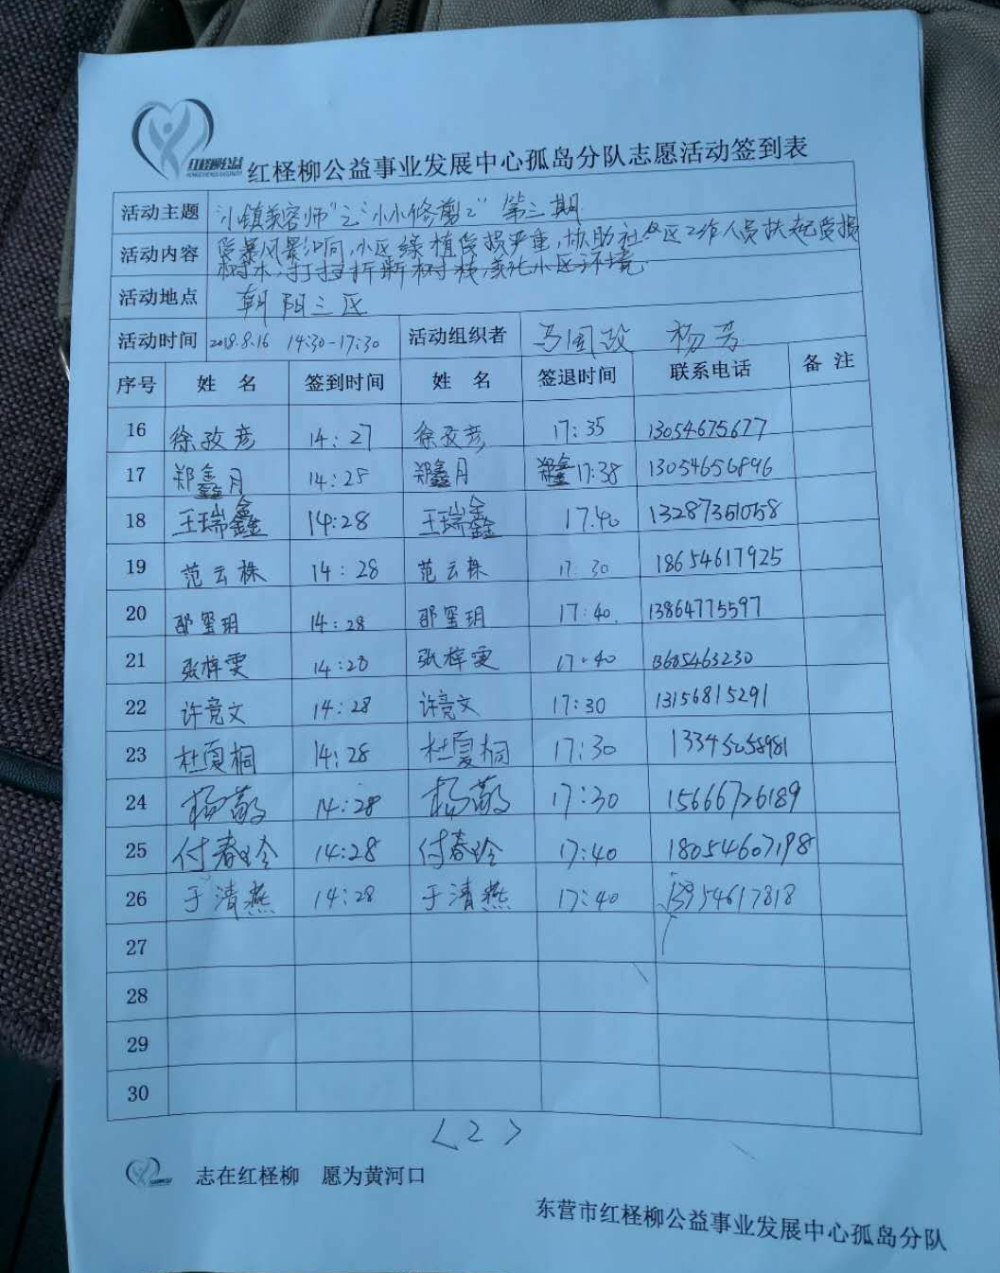 红柽柳公益
红柽柳公益事业发展中心孤岛分队志愿活动签到表
活动主题 "小镇美容师"之"小小修剪工" 第三期
活动内容 受暴风影响,小区绿植受损严重,协助社区工作人员扶起受损
树木,打扫折断树枝,美化小区环境.
活动地点 朝阳三区
活动时间 2018.8.16 14:30-17:30 活动组织者 马国政 杨芳
序号 姓名 签到时间 姓名 签退时间 联系电话 备注
16 徐孜彦 14:27 徐孜彦 17:35 13054675677
17 郑鑫月 14:25 郑鑫月 17:38 13054656896
18 王瑞鑫 14:28 王瑞鑫 17:40 13287351058
19 范云株 14:28 范云株 17:30 18654617925
20 邵玺玥 14:28 邵玺玥 17:40 13864775597
21 张梓雯 14:28 张梓雯 17:40 13605463230
22 许竞文 14:28 许竞文 17:30 13156815291
23 杜夏桐 14:28 杜夏桐 17:30
24 杨敬 14:28 杨敬 17:30 15666726189
25 付春玲 14:28 付春玲 17:40 18054607198
26 于清燕 14:28 于清燕 17:40 13954617818
27
28
29
30
<2>
志在红柽柳 愿为黄河口
东营市红柽柳公益事业发展中心孤岛分队